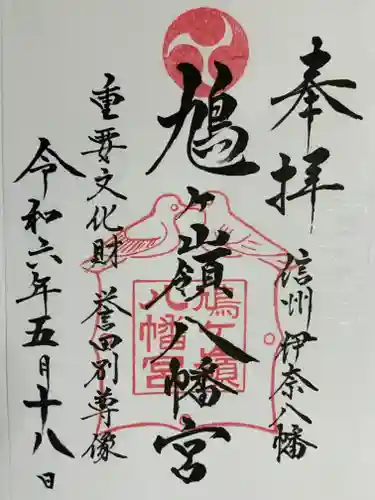 奉拝
信州 伊奈八幡
鳩ヶ嶺八幡宮
鳩ヶ嶺
八幡宮
重要文化財 誉田別尊像
令和六年五月十八日